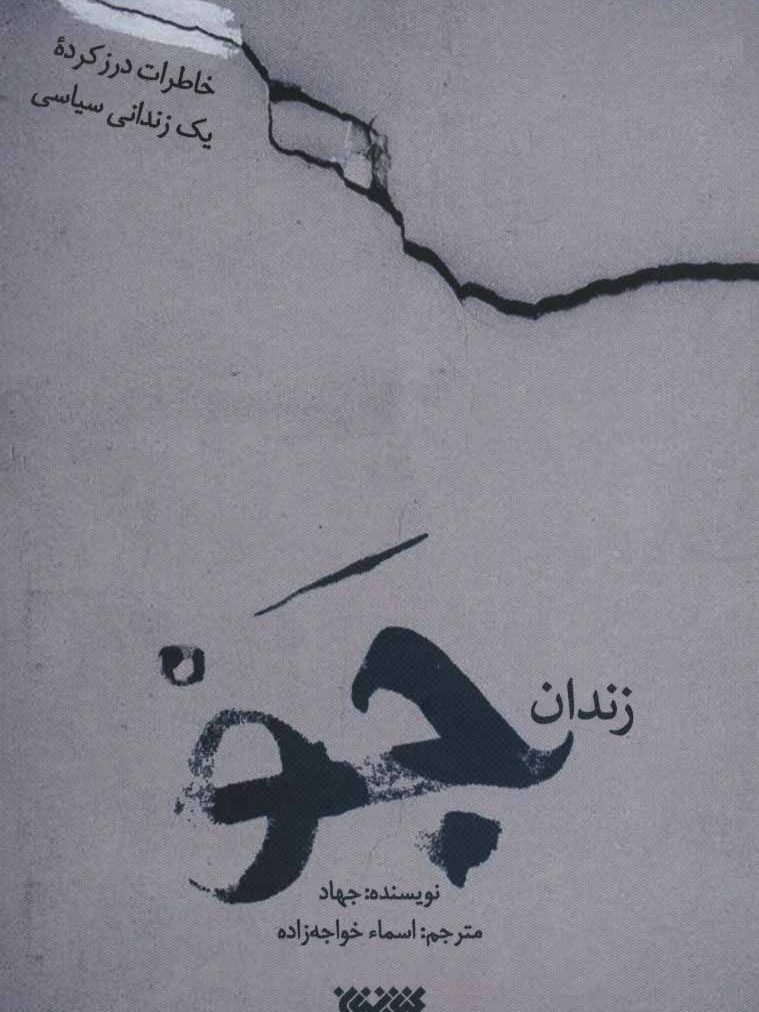 خاطرات درزکردهٔ
یک زندانی سیاسی
زندان
جَوْ
نویسنده: جهاد
مترجم: اسماء خواجه‌زاده